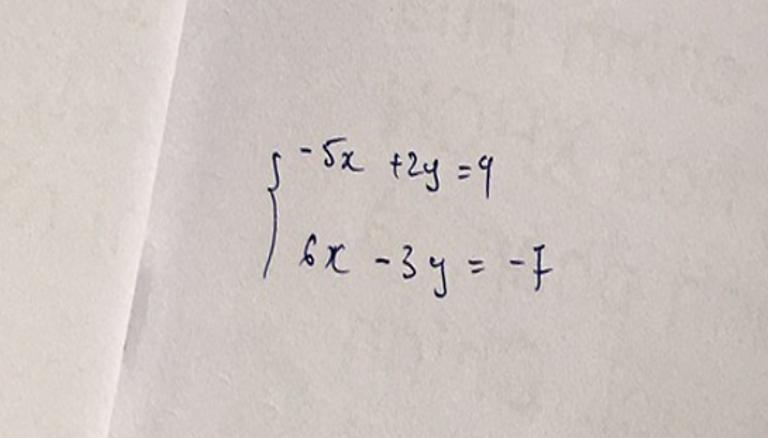 -5x +2y = 9
6x -3y = -7